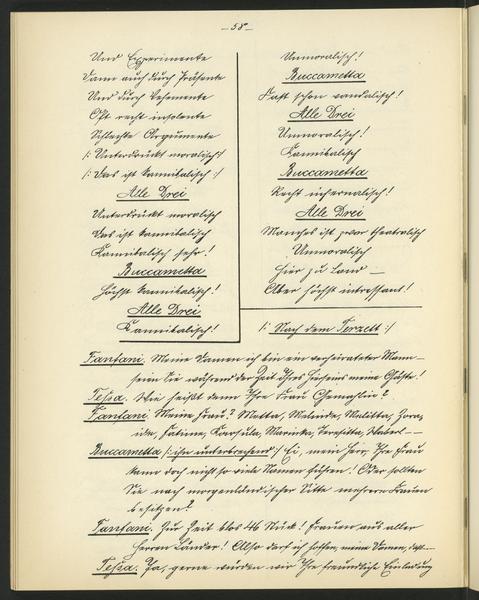 – 58 –
Und Experimente
Dann auch durch Präsente
Und durch Vehemente
Oft recht insolente
Schlechte Argumente
/: Unterdrückt moralisch :/
/: Das ist kannibalisch :/
Alle Drei
Unterdrückt moralisch
Das ist kannibalisch
Kannibalisch sehr!
Buccametta
Höchst kannibalisch!
Alle Drei
Kannibalisch!
Unmoralisch!
Buccametta
Fast schon vandalisch!
Alle Drei
Unmoralisch!
Kannibalisch
Buccametta
Recht infernalisch!
Alle Drei
Manches ist zwar theatralisch
Unmoralisch
Hier zu Land –
Aber höchst intressant!
/: Nach dem Terzett :/
Fanfani. Meine Damen ich bin ein verheirateter Mann –
seien Sie während der Zeit Ihres Hierseins meine Gäste!
Tessa. Wie heißt denn Ihre Frau Gemahlin?
Fanfani. Meine Frau? Metta, Melinda, Melitta, Zora,
Ida, Fatime, Marinka, Teresitta,
Buccametta /: ihn unterbrechend :/ Ei, mein Herr, Ihre Frau
kann doch nicht so viele Namen führen! Oder sollten
Sie nach morgenländischer Sitte mehrere Frauen
besitzen?
Fanfani. Zur Zeit blos 46 Stück! Frauen aus aller
Herren Länder! Also darf ich hoffen, meine Damen, daß –
Tessa. Ja, gerne würden wir Ihre freundliche Einladung